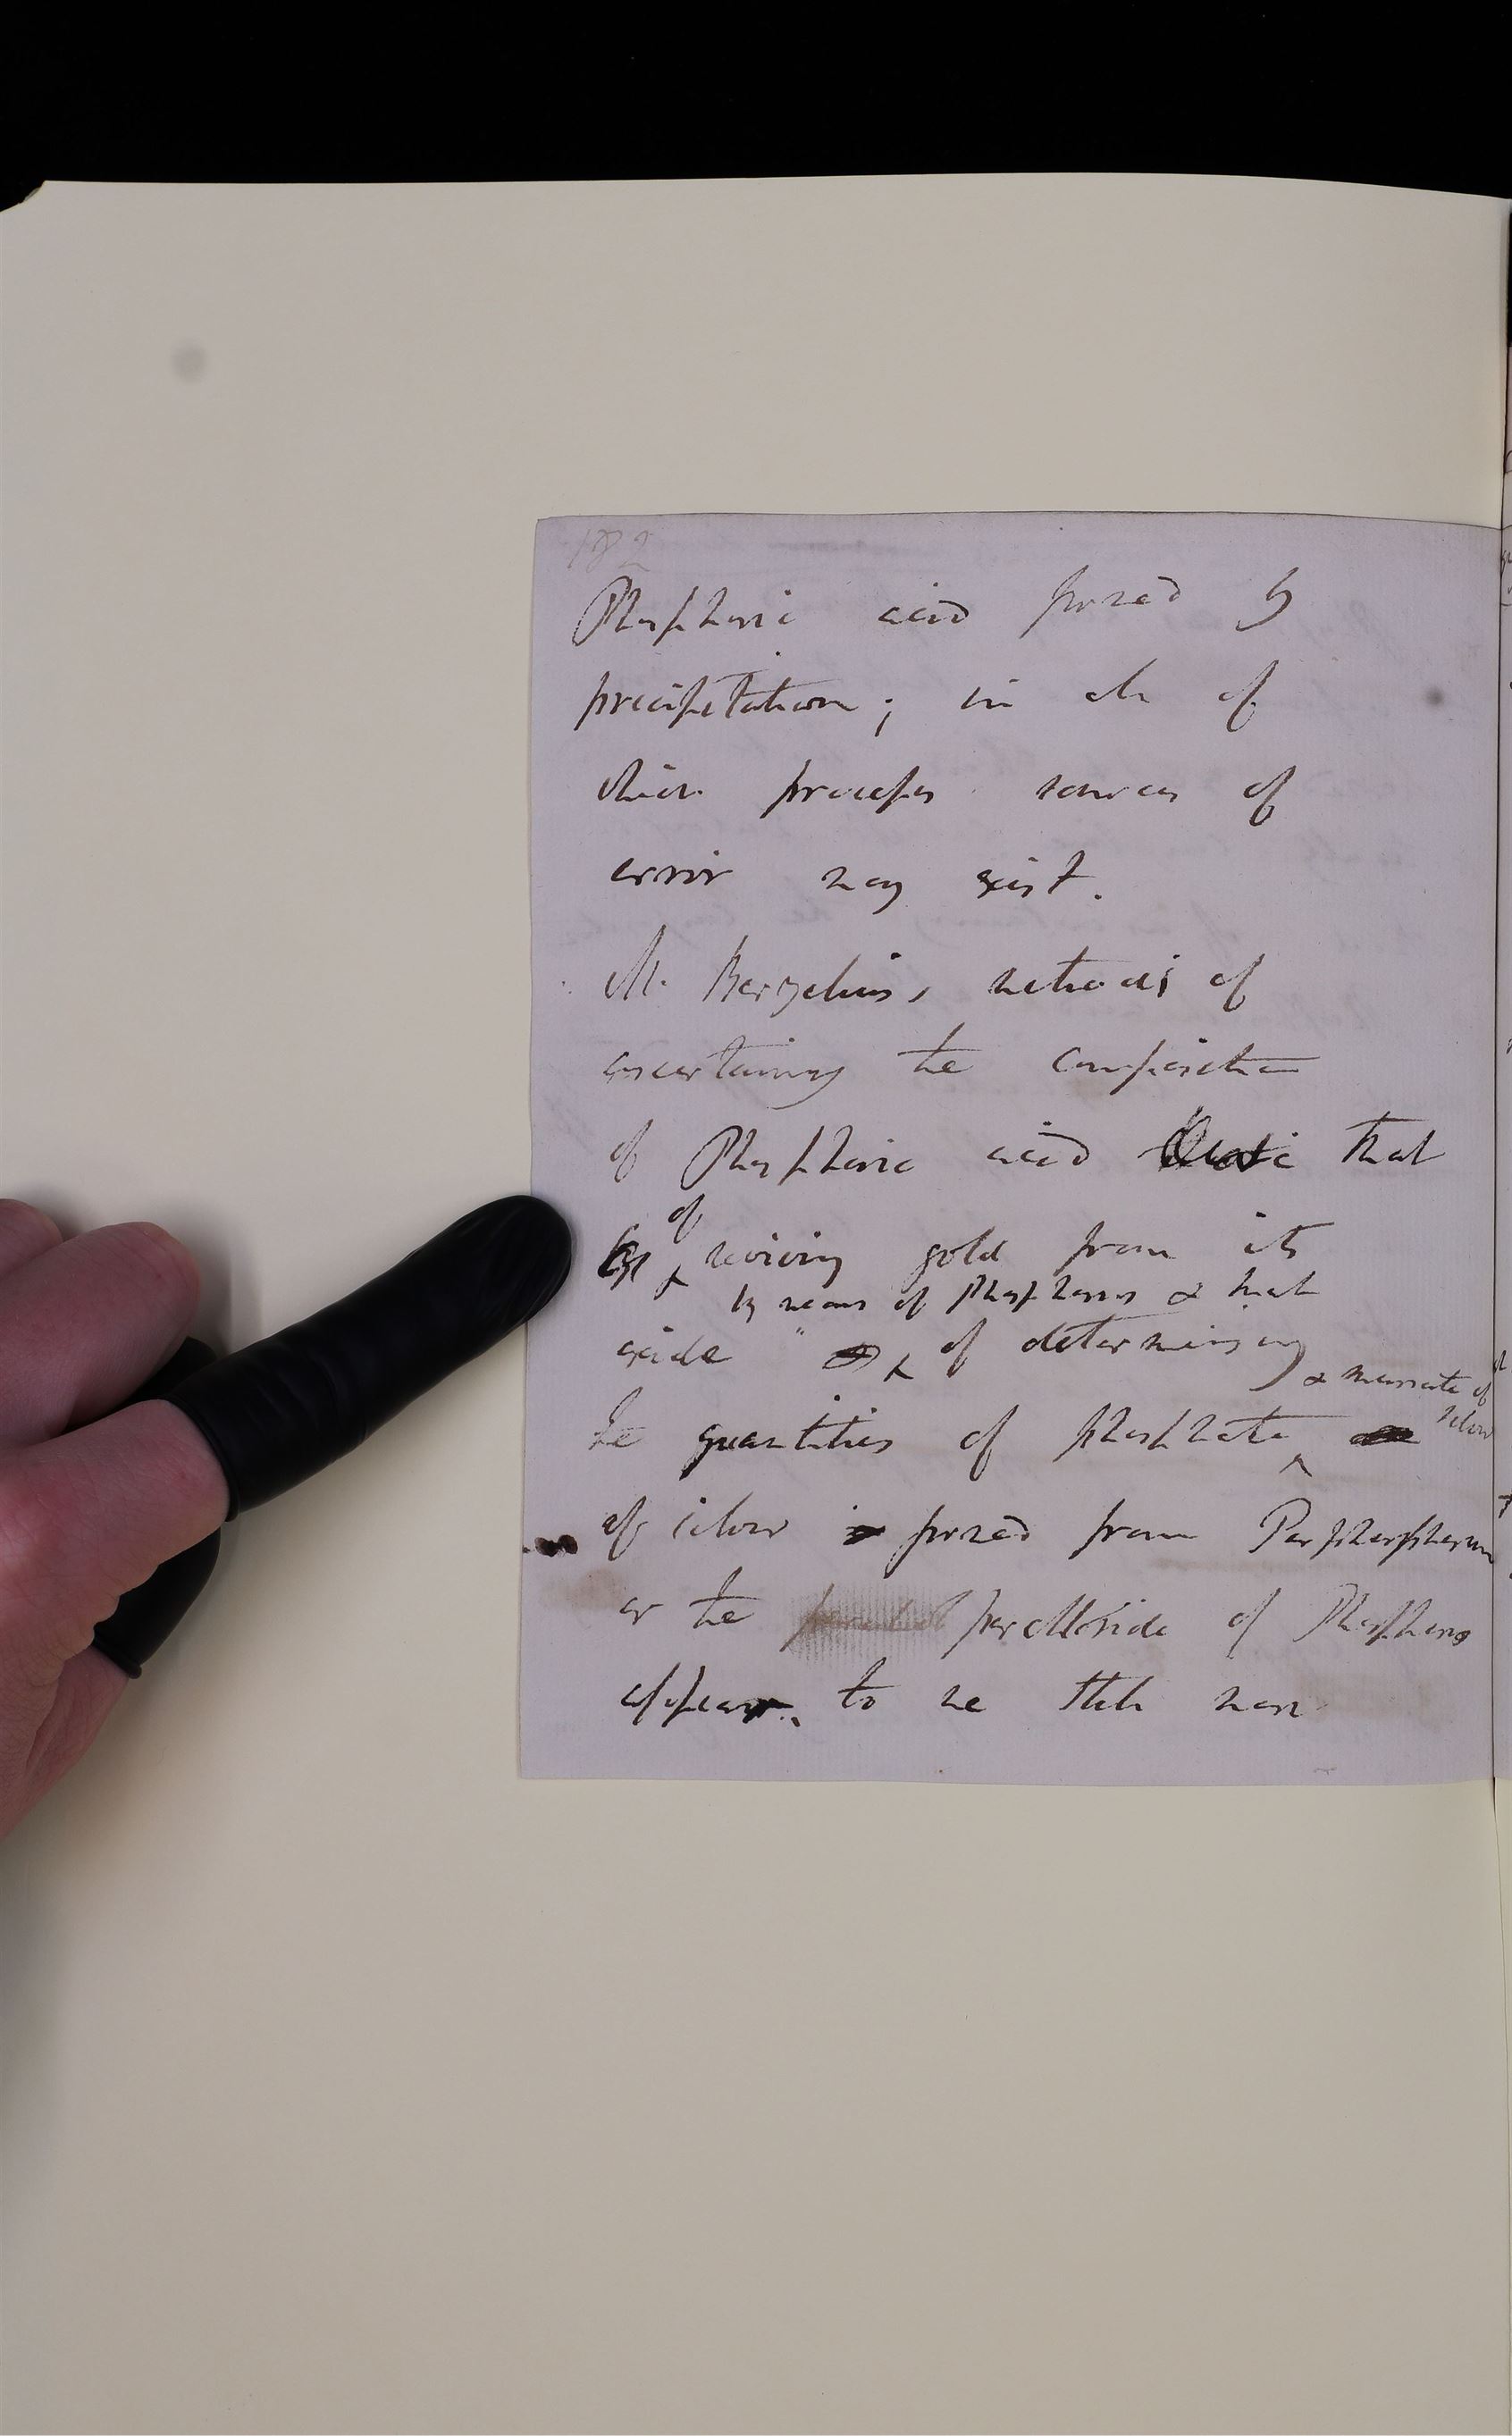 182
Phosphoric acid formed by
precipitation; in all of
which processes sources of
error may exist.
M. Berzelius, methods of
ascertaining the composition
of Phosphoric acid that
of
by reviving gold from its
by means of Phosphorus & that
oxide of determining
& muriate of
silver
the quantities of phosphate
of silver formed from
or the perchloride of Phosphorus
appear to me still more